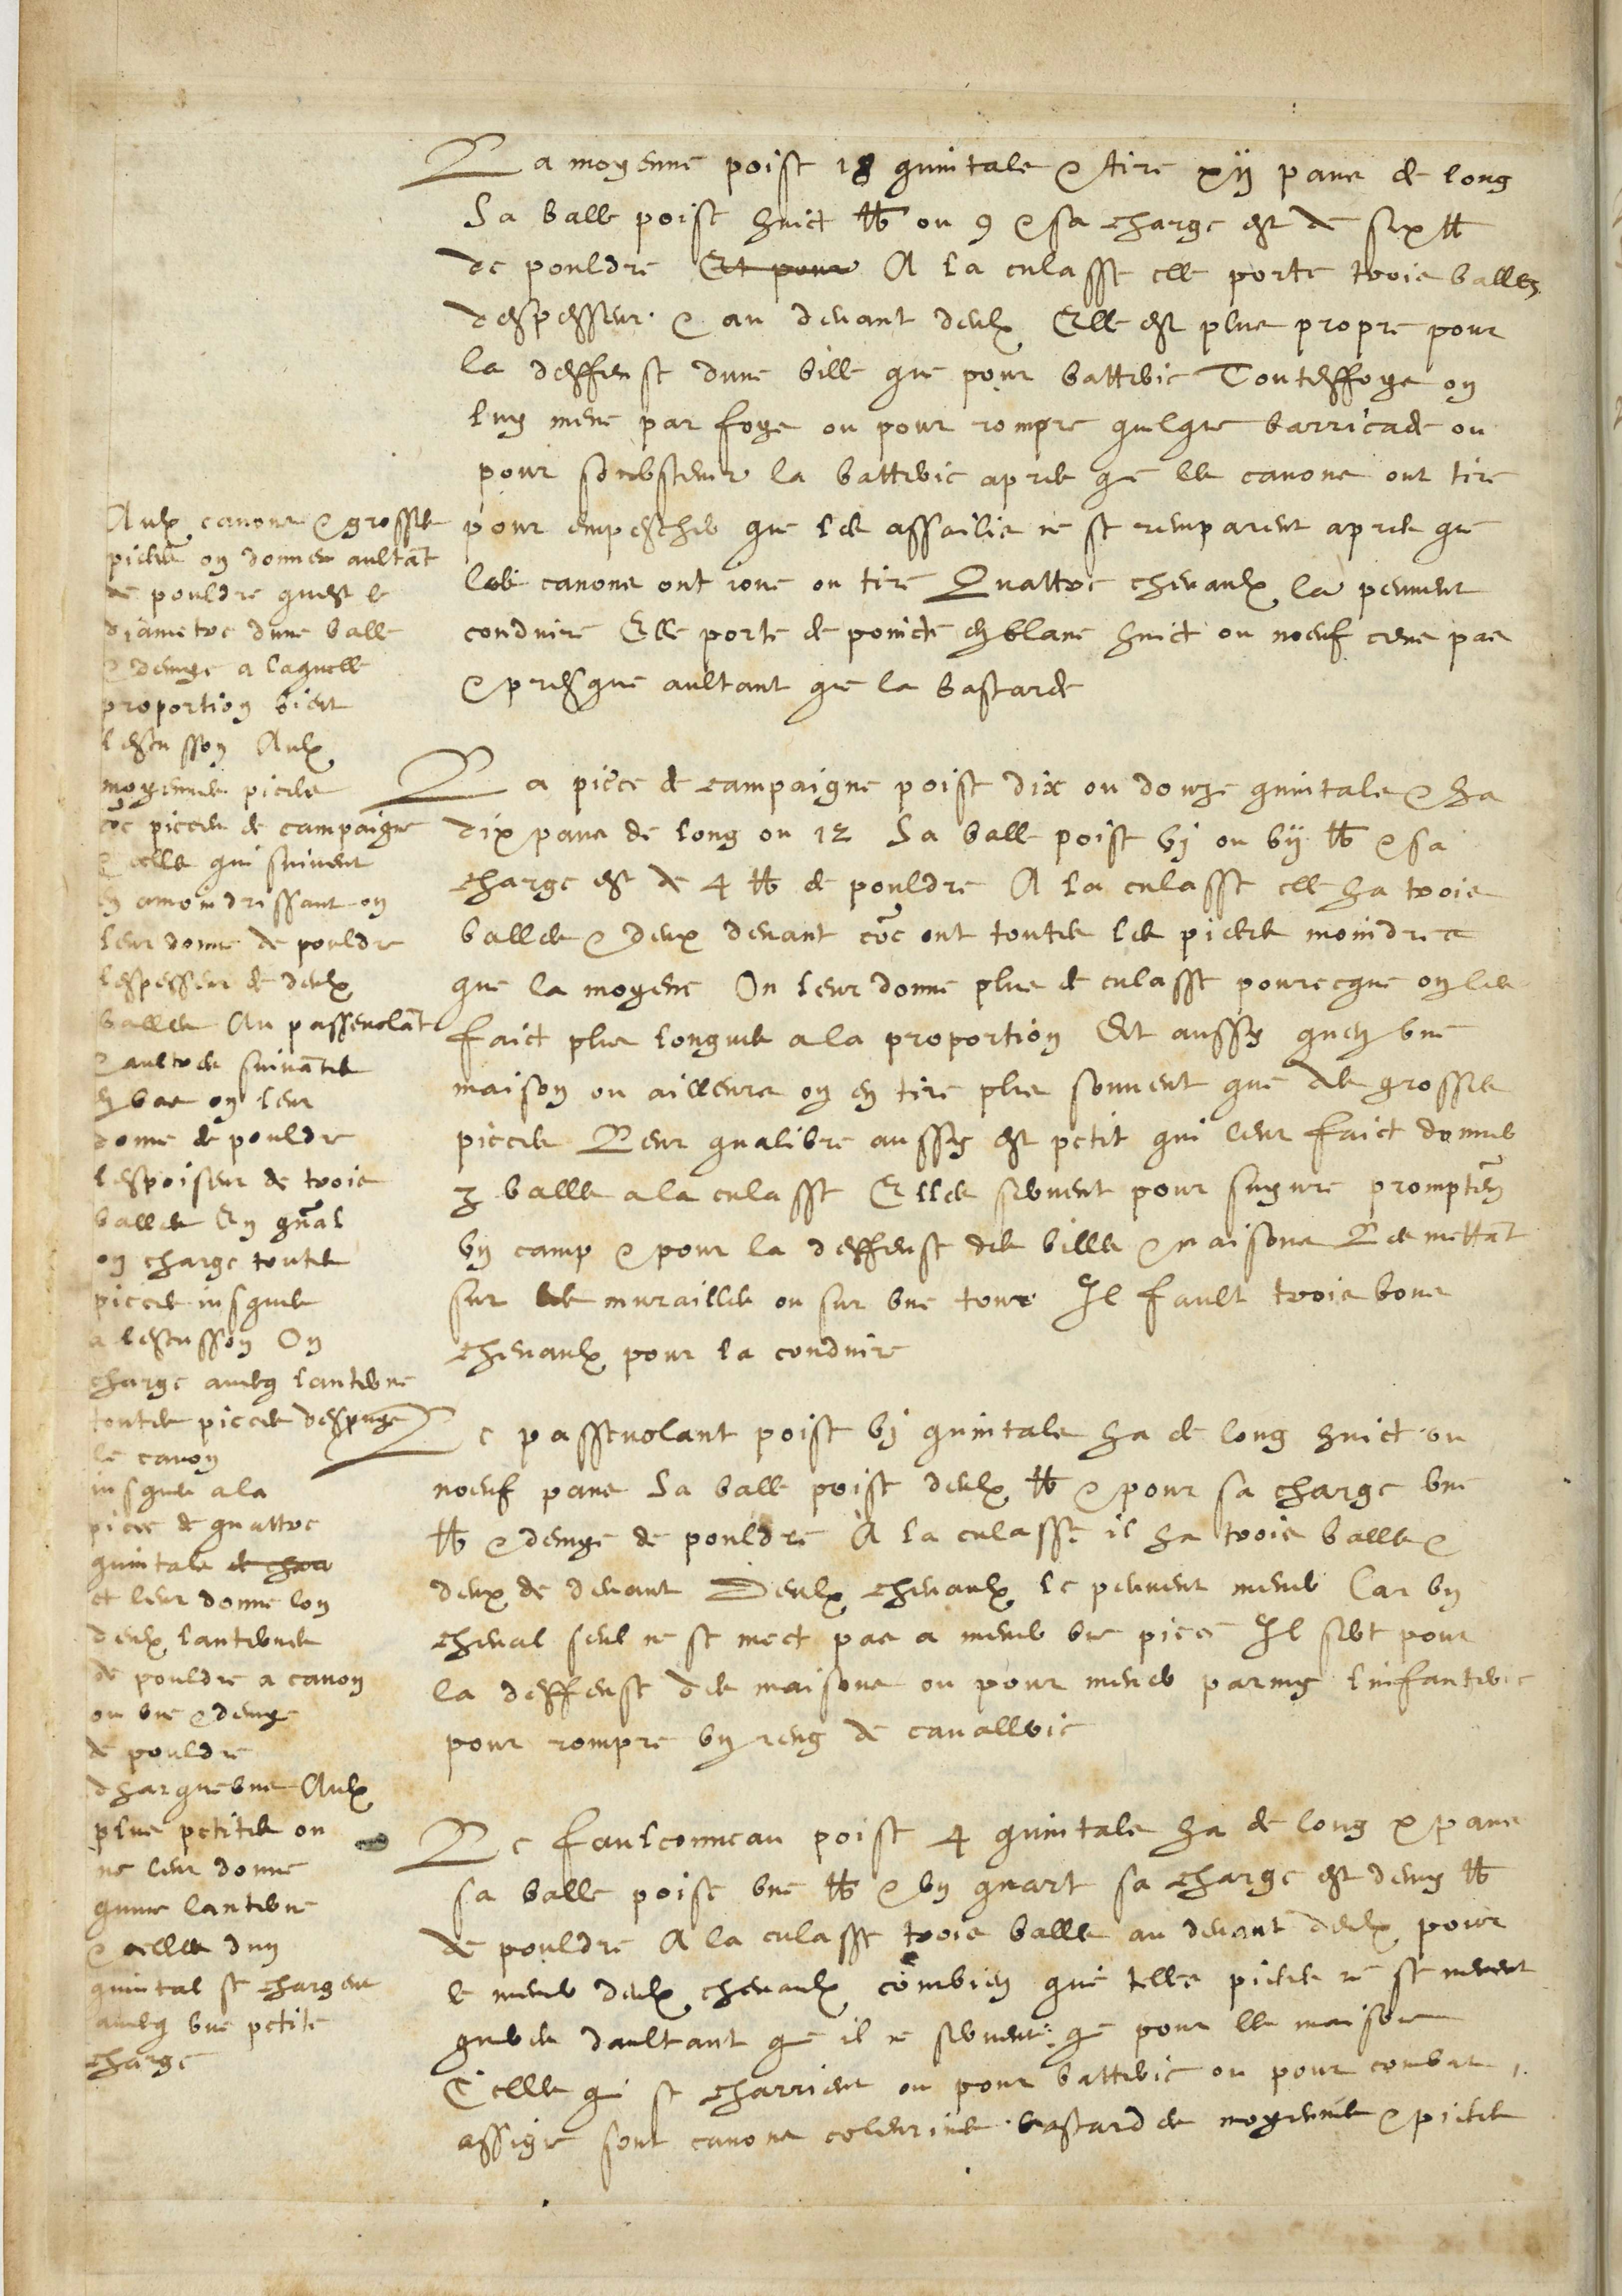 La moyenne poise 18 quintals & tire xii pans de long
Sa balle poise huict lb ou 9 & sa charge est de six lb
de pouldre Et pour A la culasse elle porte trois balles
despesseur & au devant deulx Elle est plus propre pour
la deffense dune ville que pour batterie Touteffoys on
luy mene par foys ou pour rompre quelque barricade ou
pour soubstenir la batterie apres que les canons ont tire
pour empescher que les assailis ne se remparent apres que
les canons ont joue ou tire Quattre chevaulx la peuvent
conduire Elle porte de poincte en blanc huict ou noeuf cens pas
& presque aultant que la bastarde
La piece de campaigne poise dix ou douze quintals & ha
dix pans de long ou 12 Sa balle poise vj ou vij lb & sa
charge est de 4 lb de pouldre A la culasse elle ha trois
balles & deux devant coe ont toutes les pieces moindres
que la moyene On leur donne plus de culasse pourceque on les
faict plus longues a la proportion Et aussy quen une
maison ou ailleurs on en tire plus souvent que des grosses
pieces Leur qualibre aussy est petit qui leur faict donner
3 balles a la culasse Elles servent pour suyvre promptem
un camp & pour la deffense des villes & maisons Les mettat
sur les murailles ou sur une tour Il fault trois bons
chevaulx pour la conduire
Le passevolant poise vj quintals ha de long huict ou
noeuf pans Sa balle poise deulx lb & pour sa charge une
lb & demye de pouldre A la culasse il ha trois balles &
deux de devant Deulx chevaulx le peuvent mener Car un
cheval seul ne se mect pas a mener une piece Il sert pour
la deffense des maisons ou pour mener parmy linfanterie
pour rompre un reng de cavallerie
Le faulconneau poise 4 quintals ha de long x pans
sa balle poise une lb & un quart sa charge est demy lb
de pouldre A la culasse trois balles au devant deulx pour
le mener deulx chevaulx combien que telles pieces ne se menent
gueres daultant que il ne servent que pour les maisons
Celles qui se charrient ou pour batterie ou pour combat
assigne sont canons coleurines bastardes moyennes & pieces
Aulx canons & grosses
pieces on donne aultat
de pouldre quest le
diametre dune balle
& demye a laquelle
proportion vient
lescusson Aulx
moyennes pieces
coe pieces de campaigne
& celles qui suivent
en amoindrissant on
leur donne de pouldre
lespesseur de deulx
balles Au passevolat
& aultres suivates
en bas on leur
donne de pouldre
lespoiseur de trois
balles En gnal
on charge toutes
pieces jusques
a lescusson On
charge avecq lanterne
toutes pieces despuys
le canon
jusques a la
piece de quattre
quintals et char
et leur donne lon
deulx lanternes
de pouldre a canon
ou une & demye
de pouldre
dharquebuse Aulx
plus petites on
ne leur donne
qune lanterne
& celles dun
quintal se chargent
avecq une petite
charge